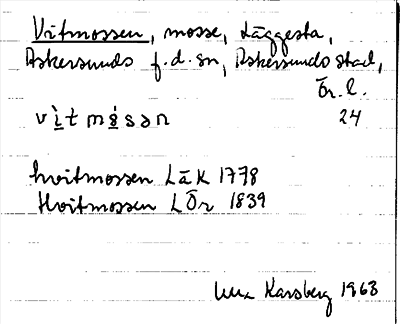 Vitmossen, mosse, Läggesta,
Askersunds f.d. sn, Askersunds stad,
Ör. l.
vìtmósən 24
hvitmossen LäK 1778
Hvitmossen LÖr 1839
Karsberg 1963